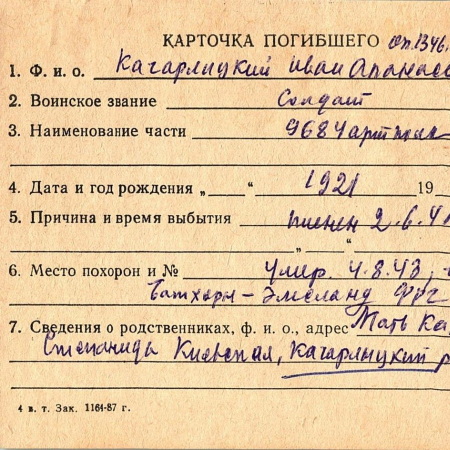 КАРТОЧКА ПОГИБШЕГО оп.1346.
1. Ф. и о. Кагарлицкий Иван Апанасо
2. Воинское звание Солдат
3. Наименование части 968 Чарт
4. Дата и год рождения „ “ 1921 19
5. Причина и время выбытия пленен 2.6.41
„ “
6. Место похорон и № Умер 4.8.43,
Батхорн-Эмсланд ФРГ
7. Сведения о родственниках, ф. и. о., адрес Мать Ка
Степанида Киевская, Кагарлицкий р
4 в. т. Зак. 1164-87 г.